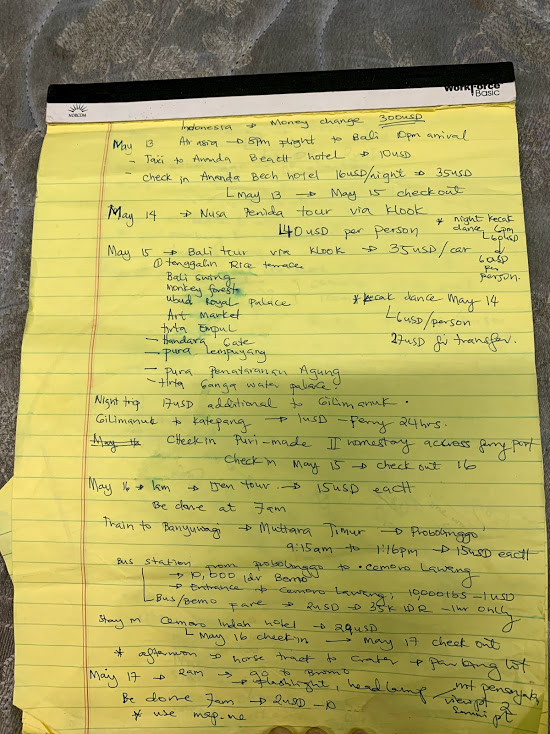 WorkForce
Basic
NORCOM
Indonesia → Money change 300USD
May 13 Air asia → 5pm flight to Bali 10pm arrival
- Taxi to Ananda Beach hotel → 10USD
- check in Ananda Bech hotel 16USD/night → 35USD
May 13 → May 15 checkout
May 14 → Nusa Penida tour via klook
40USD per person
* night kecak
dance 6pm
60USD
per
person.
May 15 → Bali tour via klook → 35USD/car
① tenggalin Rice terrace
Bali swing
Monkey forest
Ubud Royal palace
Art Market
tirta Empul
- Handara Gate
- pura lempuyang
- pura Penataran Agung
- tirta Ganga water palace
* kecak dance May 14
6USD/person
27USD for transfer.
Night trip 17USD additional to Gilimanuk.
Gilimanuk to Ketapang → 1USD - Ferry 24hrs.
Check in Puri-made II homestay accross ferry port
Check in May 15 → check out 16
May 16 → 1am → Ijen tour → 15USD each
Be done at 7am
Train to Banyuwagi → Mutiara Timur → Probolinggo
9:15am to 1:16pm → 15USD each
Bus station from probolinggo to Cemoro Lawang
→ 10,000 idr Bemo
→ Entrance to Cemoro Lawang, - 1USD
Bus/Bemo fare → 2USD → 35K IDR - 1hr only
Stay in Cemoro Indah hotel → 29USD
May 16 checkin → May 17 check out
* afternoon → horse tract to crater →
May 17 → 2am → go to Bromo
→ flashlight, headlamp
mt penanjakan
viewpt 2
Be done 7am → 2USD
* use map.me